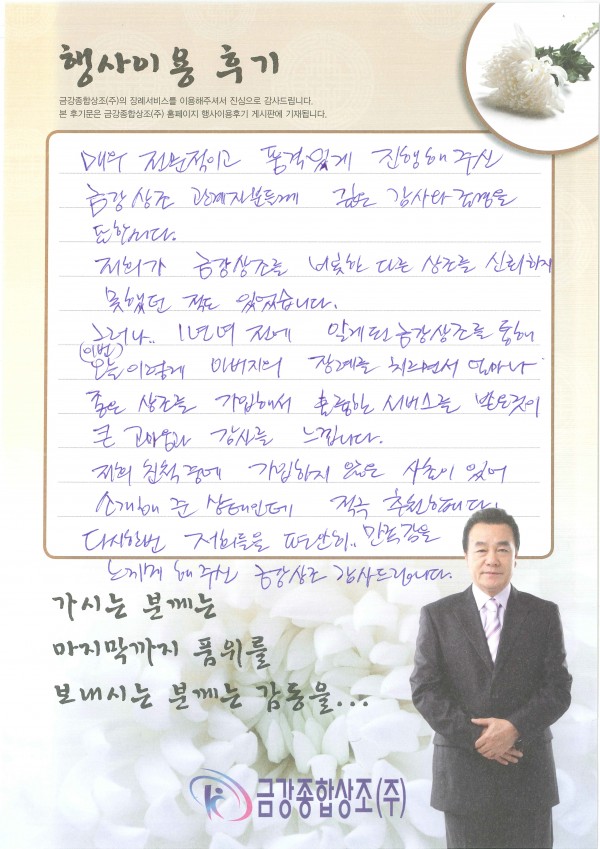 행사이용 후기
금강종합상조(주)의 장례서비스를 이용해주셔서 진심으로 감사드립니다.
본 후기문은 금강종합상조(주) 홈페이지 행사이용후기 게시판에 기재됩니다.
매우 전문적이고 품격있게 진행해 주신
금강상조 관계자분들께 깊은 감사와 존경을
표합니다.
저희가 금강상조를 비롯한 다른 상조를 신뢰하지
못했던 적도 있었습니다.
그러나.. 1년여 전에 알게된 금강상조를 통해
(이번)
오늘 이렇게 아버지의 장례를 치르면서 얼마나
좋은 상조를 가입해서 훌륭한 서비스를 받은것이
큰 고마움과 감사를 느낍니다.
저희 친척중에 가입하지 않은 사촌이 있어
소개해 준 상태인데 적극 추천합니다.
다시한번 저희들을 편안히.. 만족감을
느끼게 해주신 금강상조 감사드립니다.
가시는 분께는
마지막까지 품위를
보내시는 분께는 감동을...
금강종합상조(주)